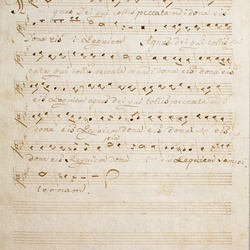 gnus Dei qui tollis peccata mundi dona eis
dona eis Requiem Agnus Dei qui tol
cata qui tollis peccata mundi dona eis dona eis
eis Requiem agnus Dei qui tollis peccata mun
dona eis Requiem dona eis dona eis
dona eis Requiem dona Requiem sempi
ternam.